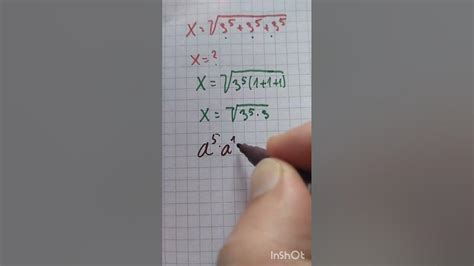 x=√3⁵+3⁵+3⁵
x=?
x=√3⁵(1+1+1)
x=√3⁵·3
a⁵·a¹
InShOt